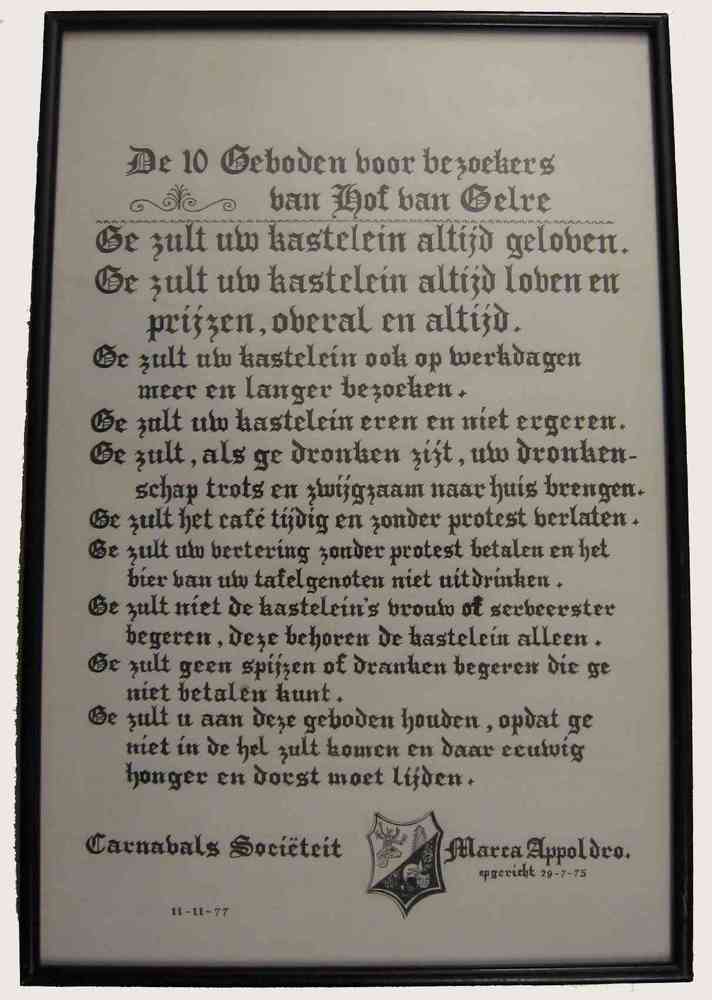 De 10 Geboden voor bezoekers
van Hof van Gelre
Ge zult uw kastelein altijd geloven.
Ge zult uw kastelein altijd loven en
prijzen, overal en altijd.
Ge zult uw kastelein ook op werkdagen
meer en langer bezoeken.
Ge zult uw kastelein eren en niet ergeren.
Ge zult, als ge dronken zijt, uw dronken-
schap trots en zwijgzaam naar huis brengen.
Ge zult het café tijdig en zonder protest verlaten.
Ge zult uw vertering zonder protest betalen en het
bier van uw tafelgenoten niet uitdrinken.
Ge zult niet de kastelein's vrouw of serveerster
begeren, deze behoren de kastelein alleen.
Ge zult geen spijzen of dranken begeren die ge
niet betalen kunt.
Ge zult u aan deze geboden houden, opdat ge
niet in de hel zult komen en daar eeuwig
honger en dorst moet lijden.
Carnavals Sociëteit Marca Appoldro.
opgericht 29-7-75
11-11-77